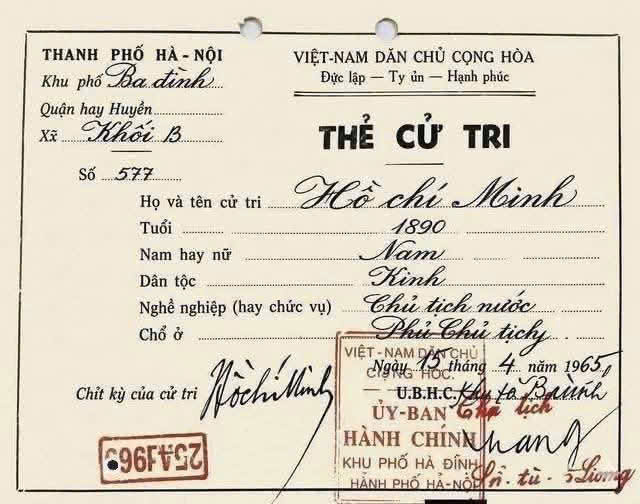 THANH PHỐ HÀ-NỘI
Khu phố Ba đình
Quận hay Huyền
Xã Khối B
VIỆT-NAM DĂN CHỦ CỌNG HÒA
Đức lập — Ty ủn — Hạnh phúc
THẺ CỬ TRI
Số 577
Họ và tên cử tri Hồ chí Minh
Tuổi 1890
Nam hay nữ Nam
Dân tộc Kinh
Nghề nghiệp (hay chức vụ) Chủ tịch nước
Chổ ở Phủ Chủ tịch
Ngày 15 tháng 4 năm 1965
Chít kỳ của cử tri Hồ Chí Minh
U.B.H.C.
VIỆT-NAM DÂN CHỦ
CỘNG HÒC
ỦY-BAN
HÀNH CHÍNH
KHU PHỐ HÀ ĐĨNH
HẢNH PHỐ HÀ-NỘI